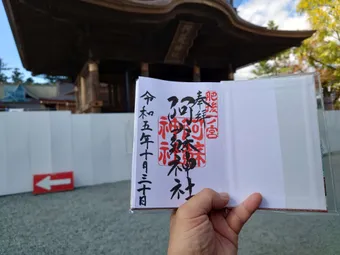 肥後一宮
奉拝
阿蘇神社
阿蘇神社
令和五年十月三十日